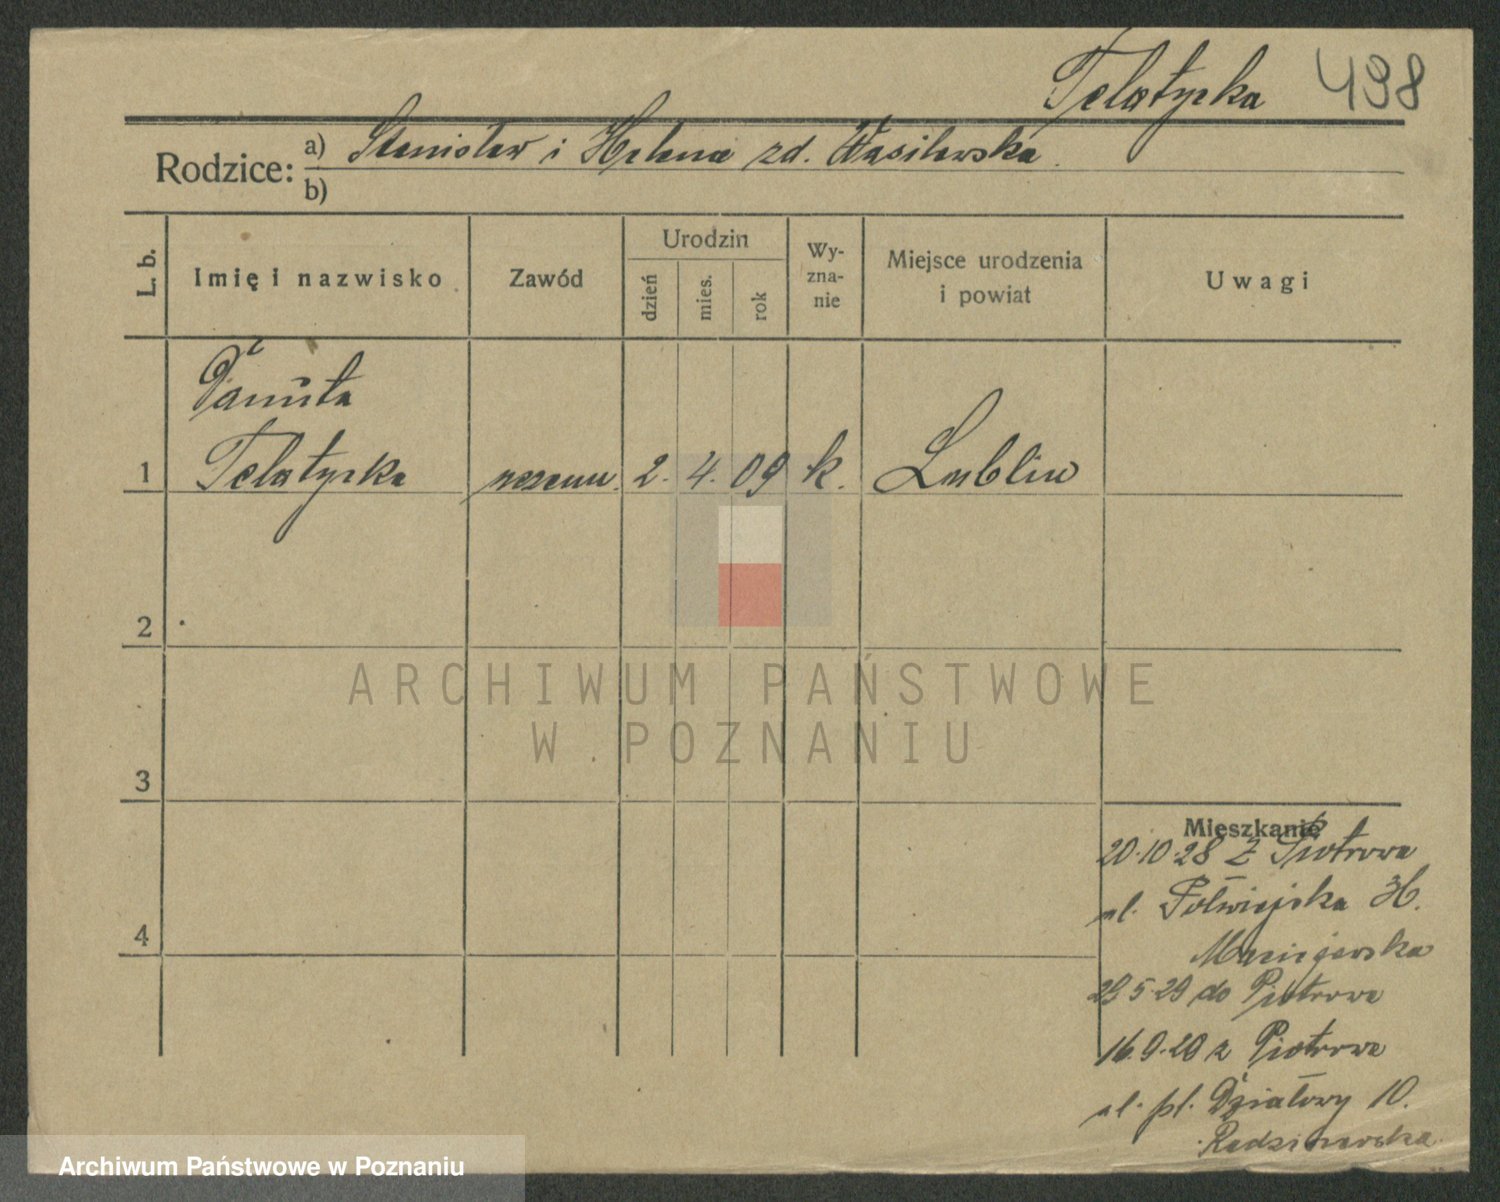 Telatycka 498
Rodzice: a) Stanisław i Helena zd. Wasilewska
b)
L. b. Imię i nazwisko Zawód Urodzin dzień mies. rok Wy-zna-nie Miejsce urodzenia i powiat Uwagi
Danuta
1 Telatycka 2. 4. 09 k. Lublin
2
3
4
Mieszkanie
20.10.28 z Piotrowa
ul. Półwiejska
29.5.29 do Piotrowa
16.9.29 z Piotrowa
ul. pl. Działowy 10.
ARCHIWUM PAŃSTWOWE
W POZNANIU
Archiwum Państwowe w Poznaniu